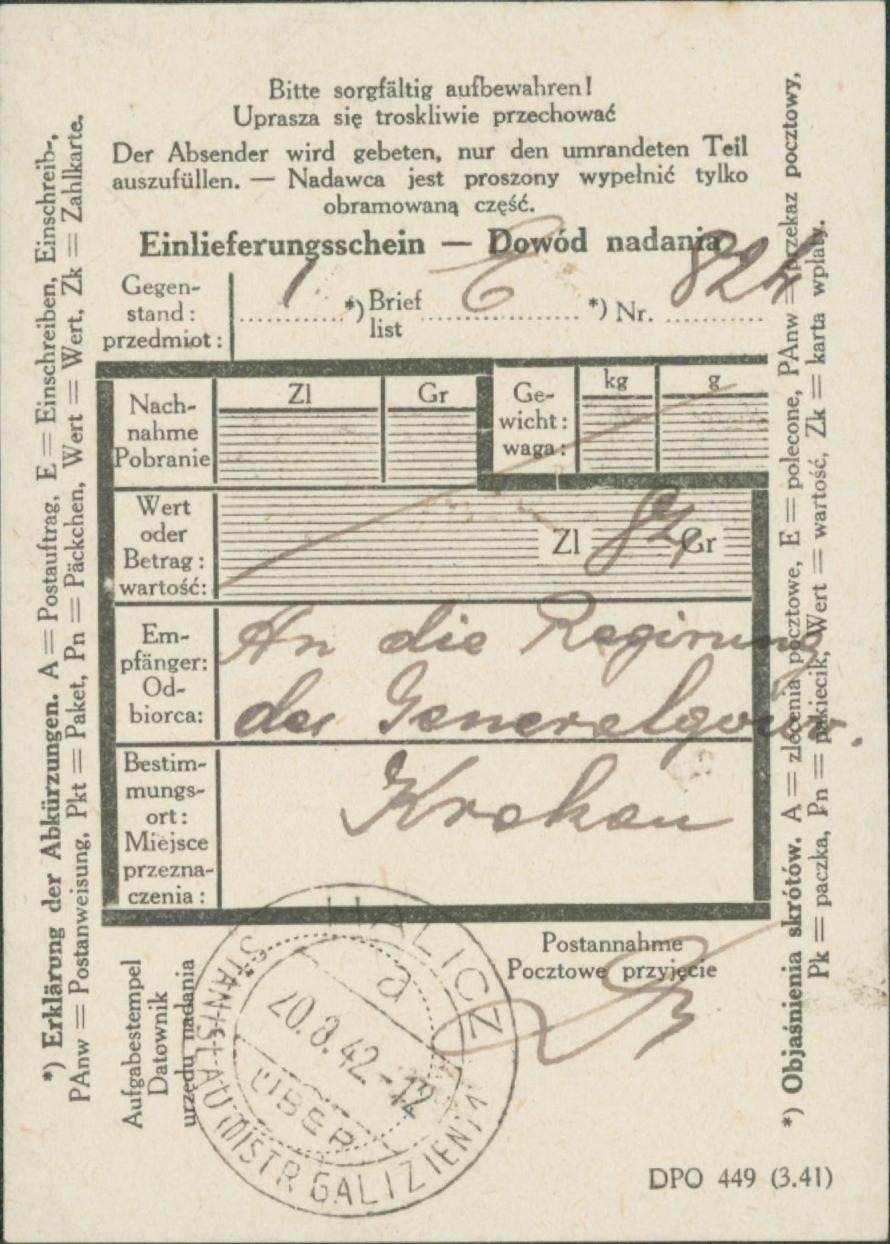 Bitte sorgfältig aufbewahren!
Uprasza się troskliwie przechować
Der Absender wird gebeten, nur den umrandeten Teil
auszufüllen. — Nadawca jest proszony wypełnić tylko
obramowaną część.
Einlieferungsschein — Dowód nadania
Gegen-
stand:
przedmiot:
1
*) Brief
list
E
*) Nr.
824
Nach-
nahme
Pobranie
Zl
Gr
Ge-
wicht:
waga:
kg
g
Wert
oder
Betrag:
wartość:
Zl
Gr
Em-
pfänger:
Od-
biorca:
An die Regirung
des Generalgouv.
Bestim-
mungs-
ort:
Miejsce
przezna-
czenia:
Krakau
Aufgabestempel
Datownik
urzędu nadania
HALICZ
a
20.8.42.-12
ÜBER
STANISLAU (DISTR GALIZIEN) 1
Postannahme
Pocztowe przyjęcie
DPO 449 (3.41)
*) Erklärung der Abkürzungen. A = Postauftrag, E = Einschreiben, Einschreib-,
PAnw = Postanweisung, Pkt = Paket, Pn = Päckchen, Wert = Wert, Zk = Zahlkarte.
*) Objaśnienia skrótów. A = zlecenia pocztowe, E = polecone, PAnw = przekaz pocztowy,
Pk = paczka, Pn = pakiecik, Wert = wartość, Zk = karta wpłaty.